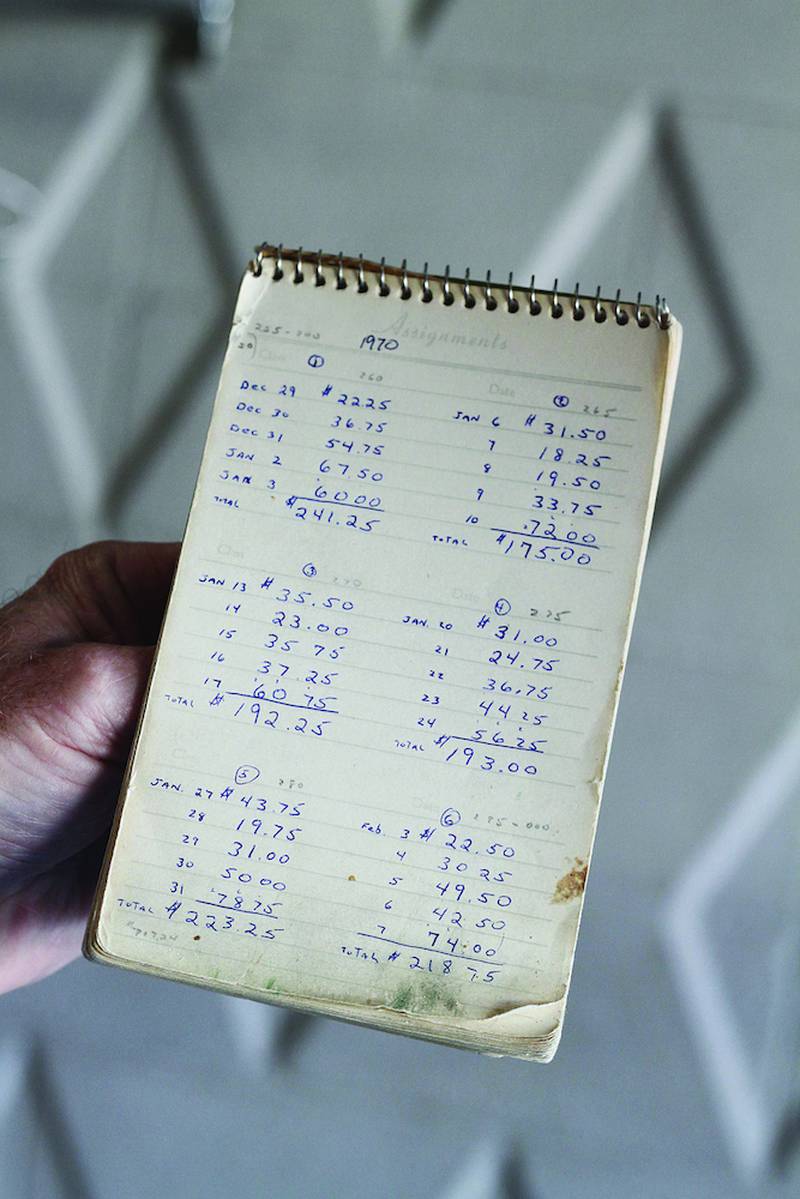 Assignments
225-200
1970
20
Class
①
260
Dec 29 $ 22.25
Dec 30 36.75
Dec 31 54.75
JAN 2 67.50
JAN 3 60 00
TOTAL $241.25
Date
② 265
JAN 6 $ 31.50
7 18.25
8 19.50
9 33.75
10 72 00
TOTAL $175.00
Class
③
270
JAN 13 $ 35.50
14 23.00
15 35 75
16 37.25
17 60 75
TOTAL $ 192.25
Date
④ 275
JAN. 20 $ 31.00
21 24.75
22 36.75
23 44 25
24 56 25
TOTAL $193.00
⑤ 280
JAN. 27 $ 43.75
28 19.75
29 31.00
30 50 00
31 78 75
TOTAL $ 223.25
⑥
Feb. 3 $ 22.50
4 30 25
5 49.50
6 42 50
7 74.00
TOTAL $ 218 75